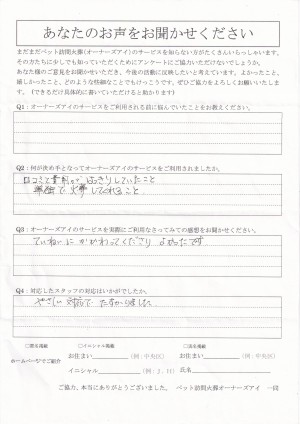 あなたのお声をお聞かせください
まだまだペット訪問火葬(オーナーズアイ)のサービスを知らない方がたくさんいらっしゃいます。
その方たちに少しでも知っていただくためにアンケートにご協力いただけないでしょうか。
あなた様のご意見をお聞かせいただき、今後の活動に反映したいと考えています。よかったこと、
嬉しかったこと、どのような些細なことでもけっこうです。ぜひご協力をよろしくお願いいたしま
す。（できるだけ具体的に書いていただけると助かります）
Q1：オーナーズアイのサービスをご利用される前に悩んでいたことをお教えください。
Q2：何が決め手となってオーナーズアイのサービスをご利用されましたか。
口コミで費用が はっきりしていたこと
Q3：オーナーズアイのサービスを実際にご利用なさってみての感想をお聞かせください。
ていねいに かかわってくださり よかったです
Q4：対応したスタッフの対応はいかがでしたか。
やさしい 対応で たすかりました
□匿名掲載 □イニシャル掲載 □氏名掲載
お住まい （例：中央区） お住まい （例：中央区）
ホームページでご紹介
イニシャル （例：J．H） 氏名
ご協力、本当にありがとうございました。 ペット訪問火葬オーナーズアイ 一同